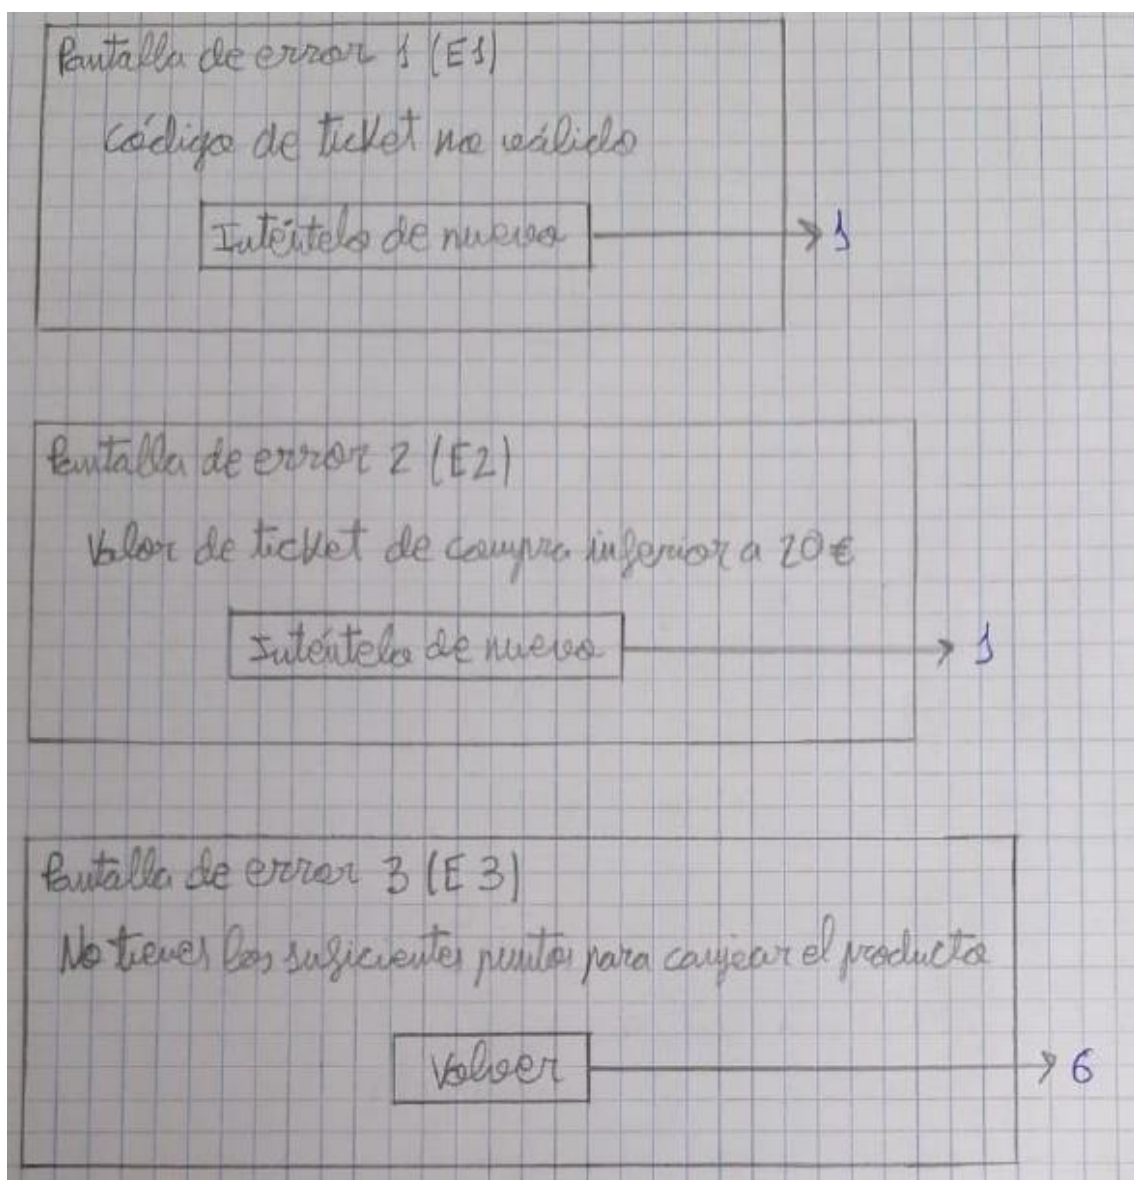 Pantalla de error 1 (E1)
Código de ticket no válido
Inténtelo de nuevo
1
Pantalla de error 2 (E2)
Valor de ticket de compra inferior a 20€
Inténtelo de nuevo
1
Pantalla de error 3 (E3)
No tienes los suficientes puntos para canjear el producto
Volver
6